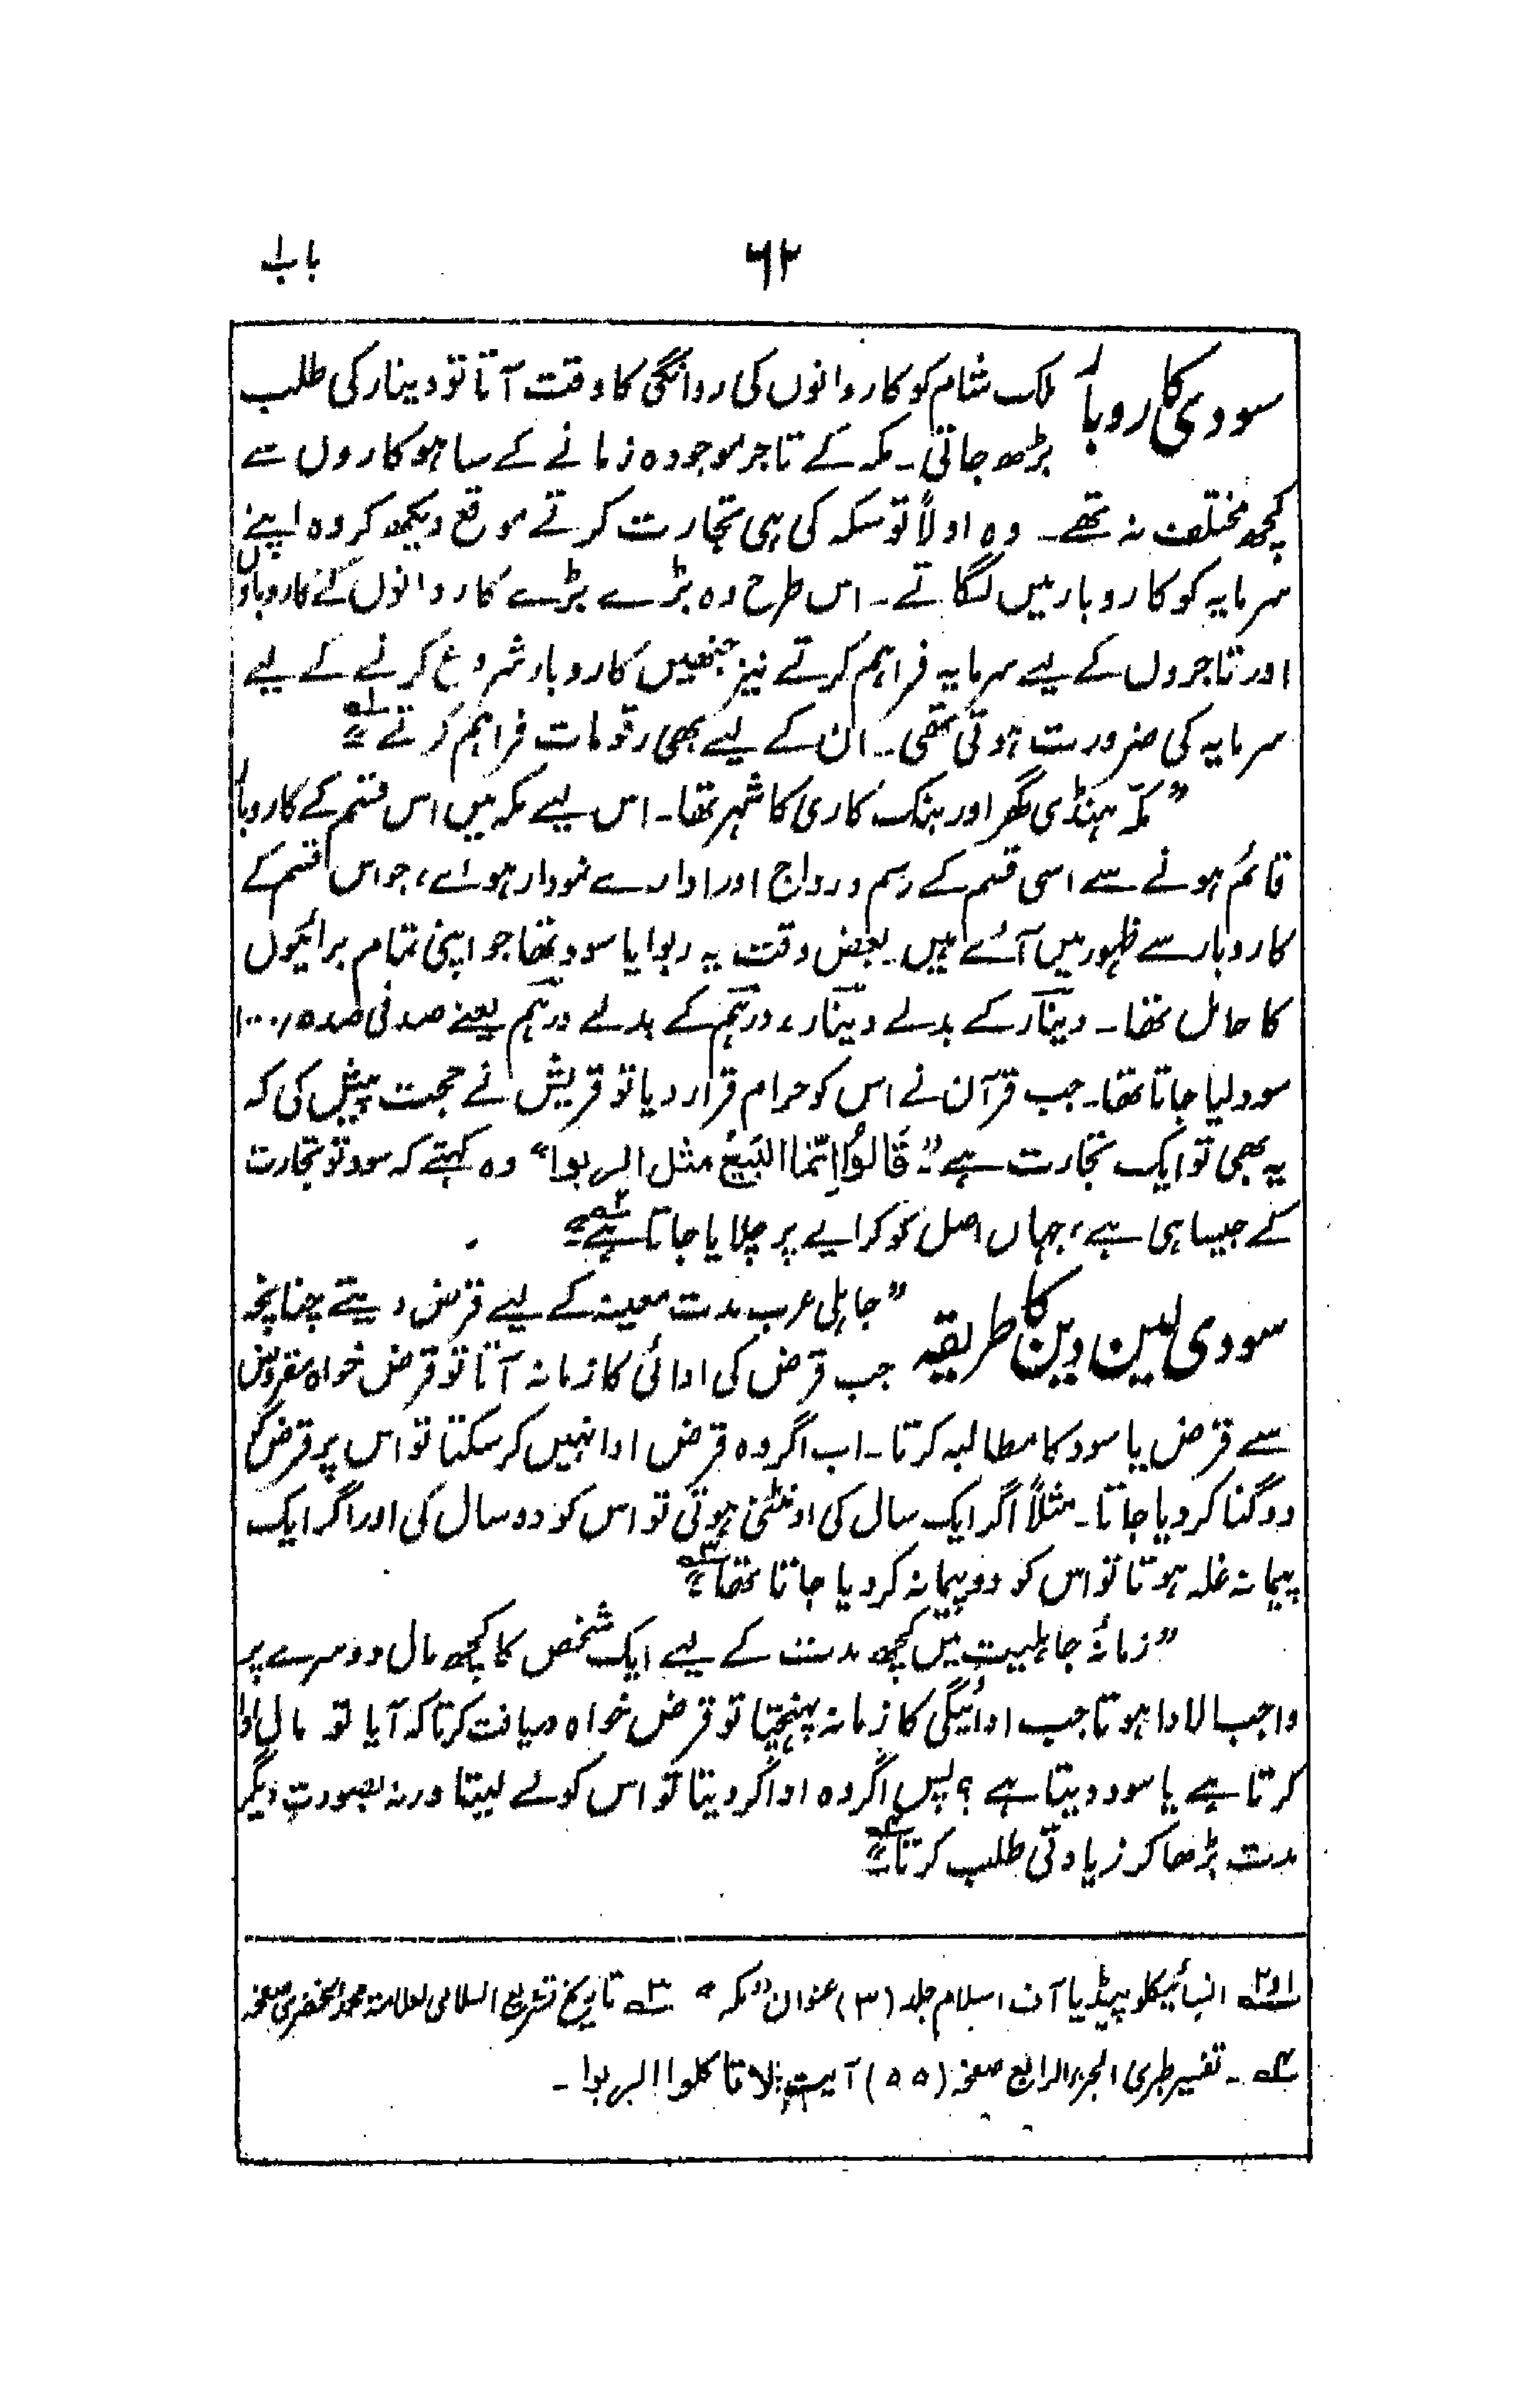 باب ۱
۶۲
سودی کاروبار ملک شام کو کاروانوں کی روانگی کا وقت آتا تو دینار کی طلب
بڑھ جاتی۔ مکہ کے تاجر موجودہ زمانے کے ساہوکاروں سے
کچھ مختلف نہ تھے۔ وہ اولاً تو سکہ کی ہی تجارت کرتے موقع دیکھ کر وہ اپنے
سرمایہ کو کاروبار میں لگاتے۔ اس طرح وہ بڑے بڑے کاروانوں کے کاروباروں
اور تاجروں کے لیے سرمایہ فراہم کرتے نیز جنھیں کاروبار شروع کرنے کے لیے
سرمایہ کی ضرورت ہوتی تھی۔ ان کے لیے بھی رقومات فراہم کرتے ۱؎"
"مکّہ ہنڈی گھر اور بنک کاری کا شہر تھا۔ اس لیے مکہ میں اس قسم کے کاروبار
قائم ہونے سے اسی قسم کے رسم و رواج اور ادارے نمودار ہوئے، جو اس قسم کے
کاروبار سے ظہور میں آئے ہیں۔ بعض وقت یہ ربوا یا سود تھا جو اپنی تمام برائیوں
کا حامل تھا۔ دینار کے بدلے دینار، درہم کے بدلے درہم یعنے صد فی صد ۱۰۰٪
سود لیا جاتا تھا۔ جب قرآن نے اس کو حرام قرار دیا تو قریش نے حجت پیش کی کہ
یہ بھی تو ایک تجارت ہے "قَالُوا اِنَّمَا البَیعُ مثل الربوا" وہ کہتے کہ سود تو تجارت
کے جیسا ہی ہے، جہاں اصل کو کرایے پر چلایا جاتا ہے ۲؎"
سودی لین دین کا طریقہ "جاہلی عرب مدت معینہ کے لیے قرض دیتے چنانچہ
جب قرض کی ادائی کا زمانہ آتا تو قرض خواہ مقروض
سے قرض یا سود کا مطالبہ کرتا۔ اب اگر وہ قرض ادا نہیں کر سکتا تو اس پر قرض کو
دوگنا کر دیا جاتا۔ مثلاً اگر ایک سال کی اونٹنی ہوتی تو اس کو دو سال کی اور اگر ایک
پیمانہ غلہ ہوتا تو اس کو دو پیمانہ کر دیا جاتا تھا ۳؎"
"زمانۂ جاہلیت میں کچھ مدت کے لیے ایک شخص کا کچھ مال دوسرے پر
واجب الادا ہوتا جب ادائیگی کا زمانہ پہنچتا تو قرض خواہ دریافت کرتا کہ آیا تو مال ادا
کرتا ہے یا سود دیتا ہے؟ پس اگر وہ ادا کر دیتا تو اس کو لے لیتا ورنہ بصورتِ دیگر
مدت بڑھا کر زیادتی طلب کرتا ۴؎"
۱ و ۲؎ انسائیکلوپیڈیا آف اسلام جلد (۳) عنوان "مکہ" ۳؎ تاریخ تشریع السلامی لعلامتہ محمد الخضری صفحہ
۴؎۔ تفسیر طبری الجزء الرابع صفحہ (۵۵) آیت: لا تاکلوا الربوا۔